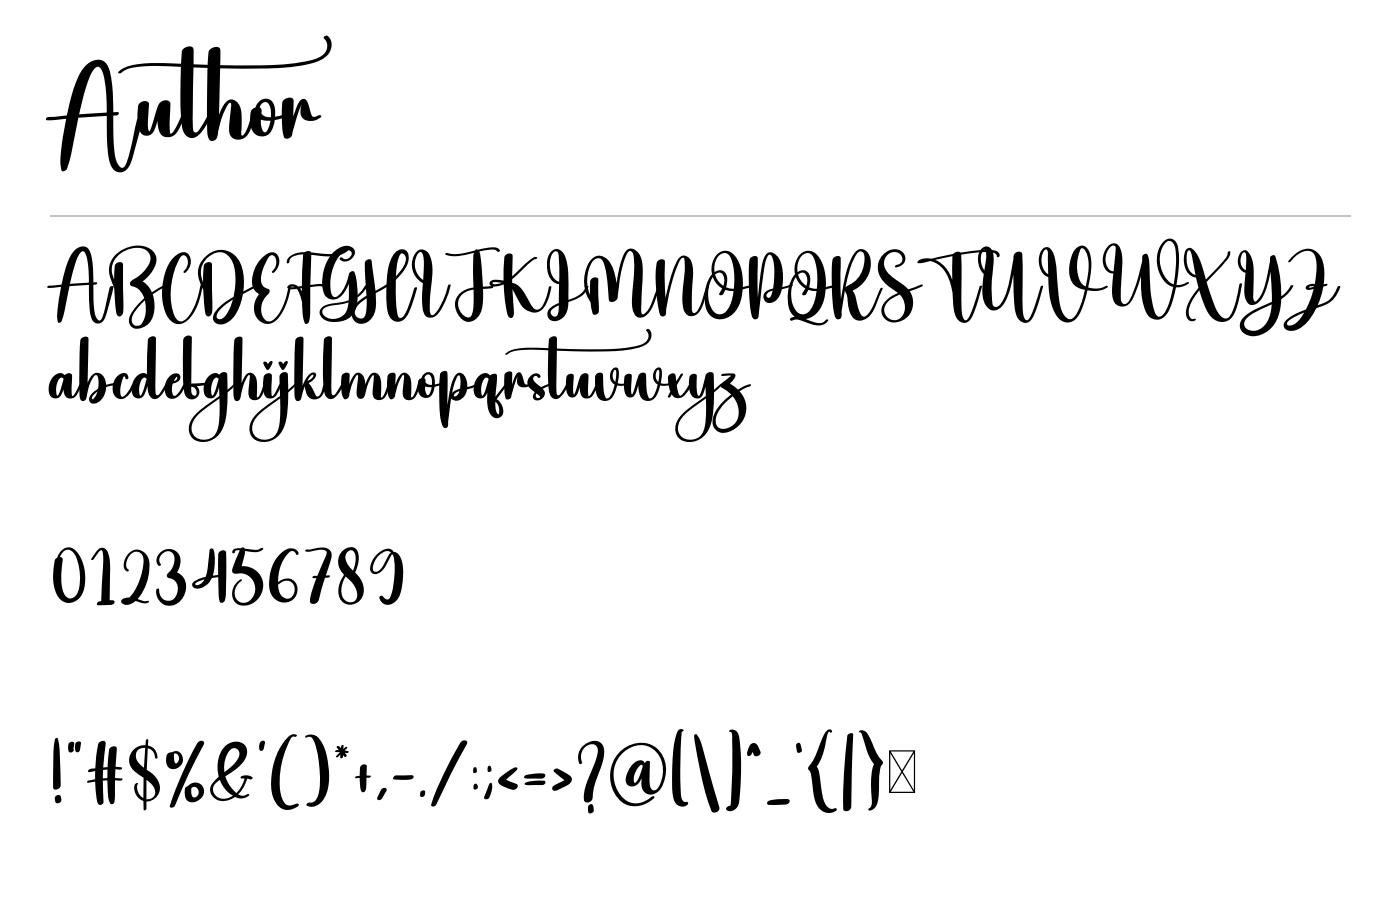 Author
ABCDEFGHIJKLMNOPQRSTUVWXYZ
abcdefghijklmnopqrstuvwxyz
0123456789
!"#$%&'()*+,-./:;<=>?@[\]^_`{|}